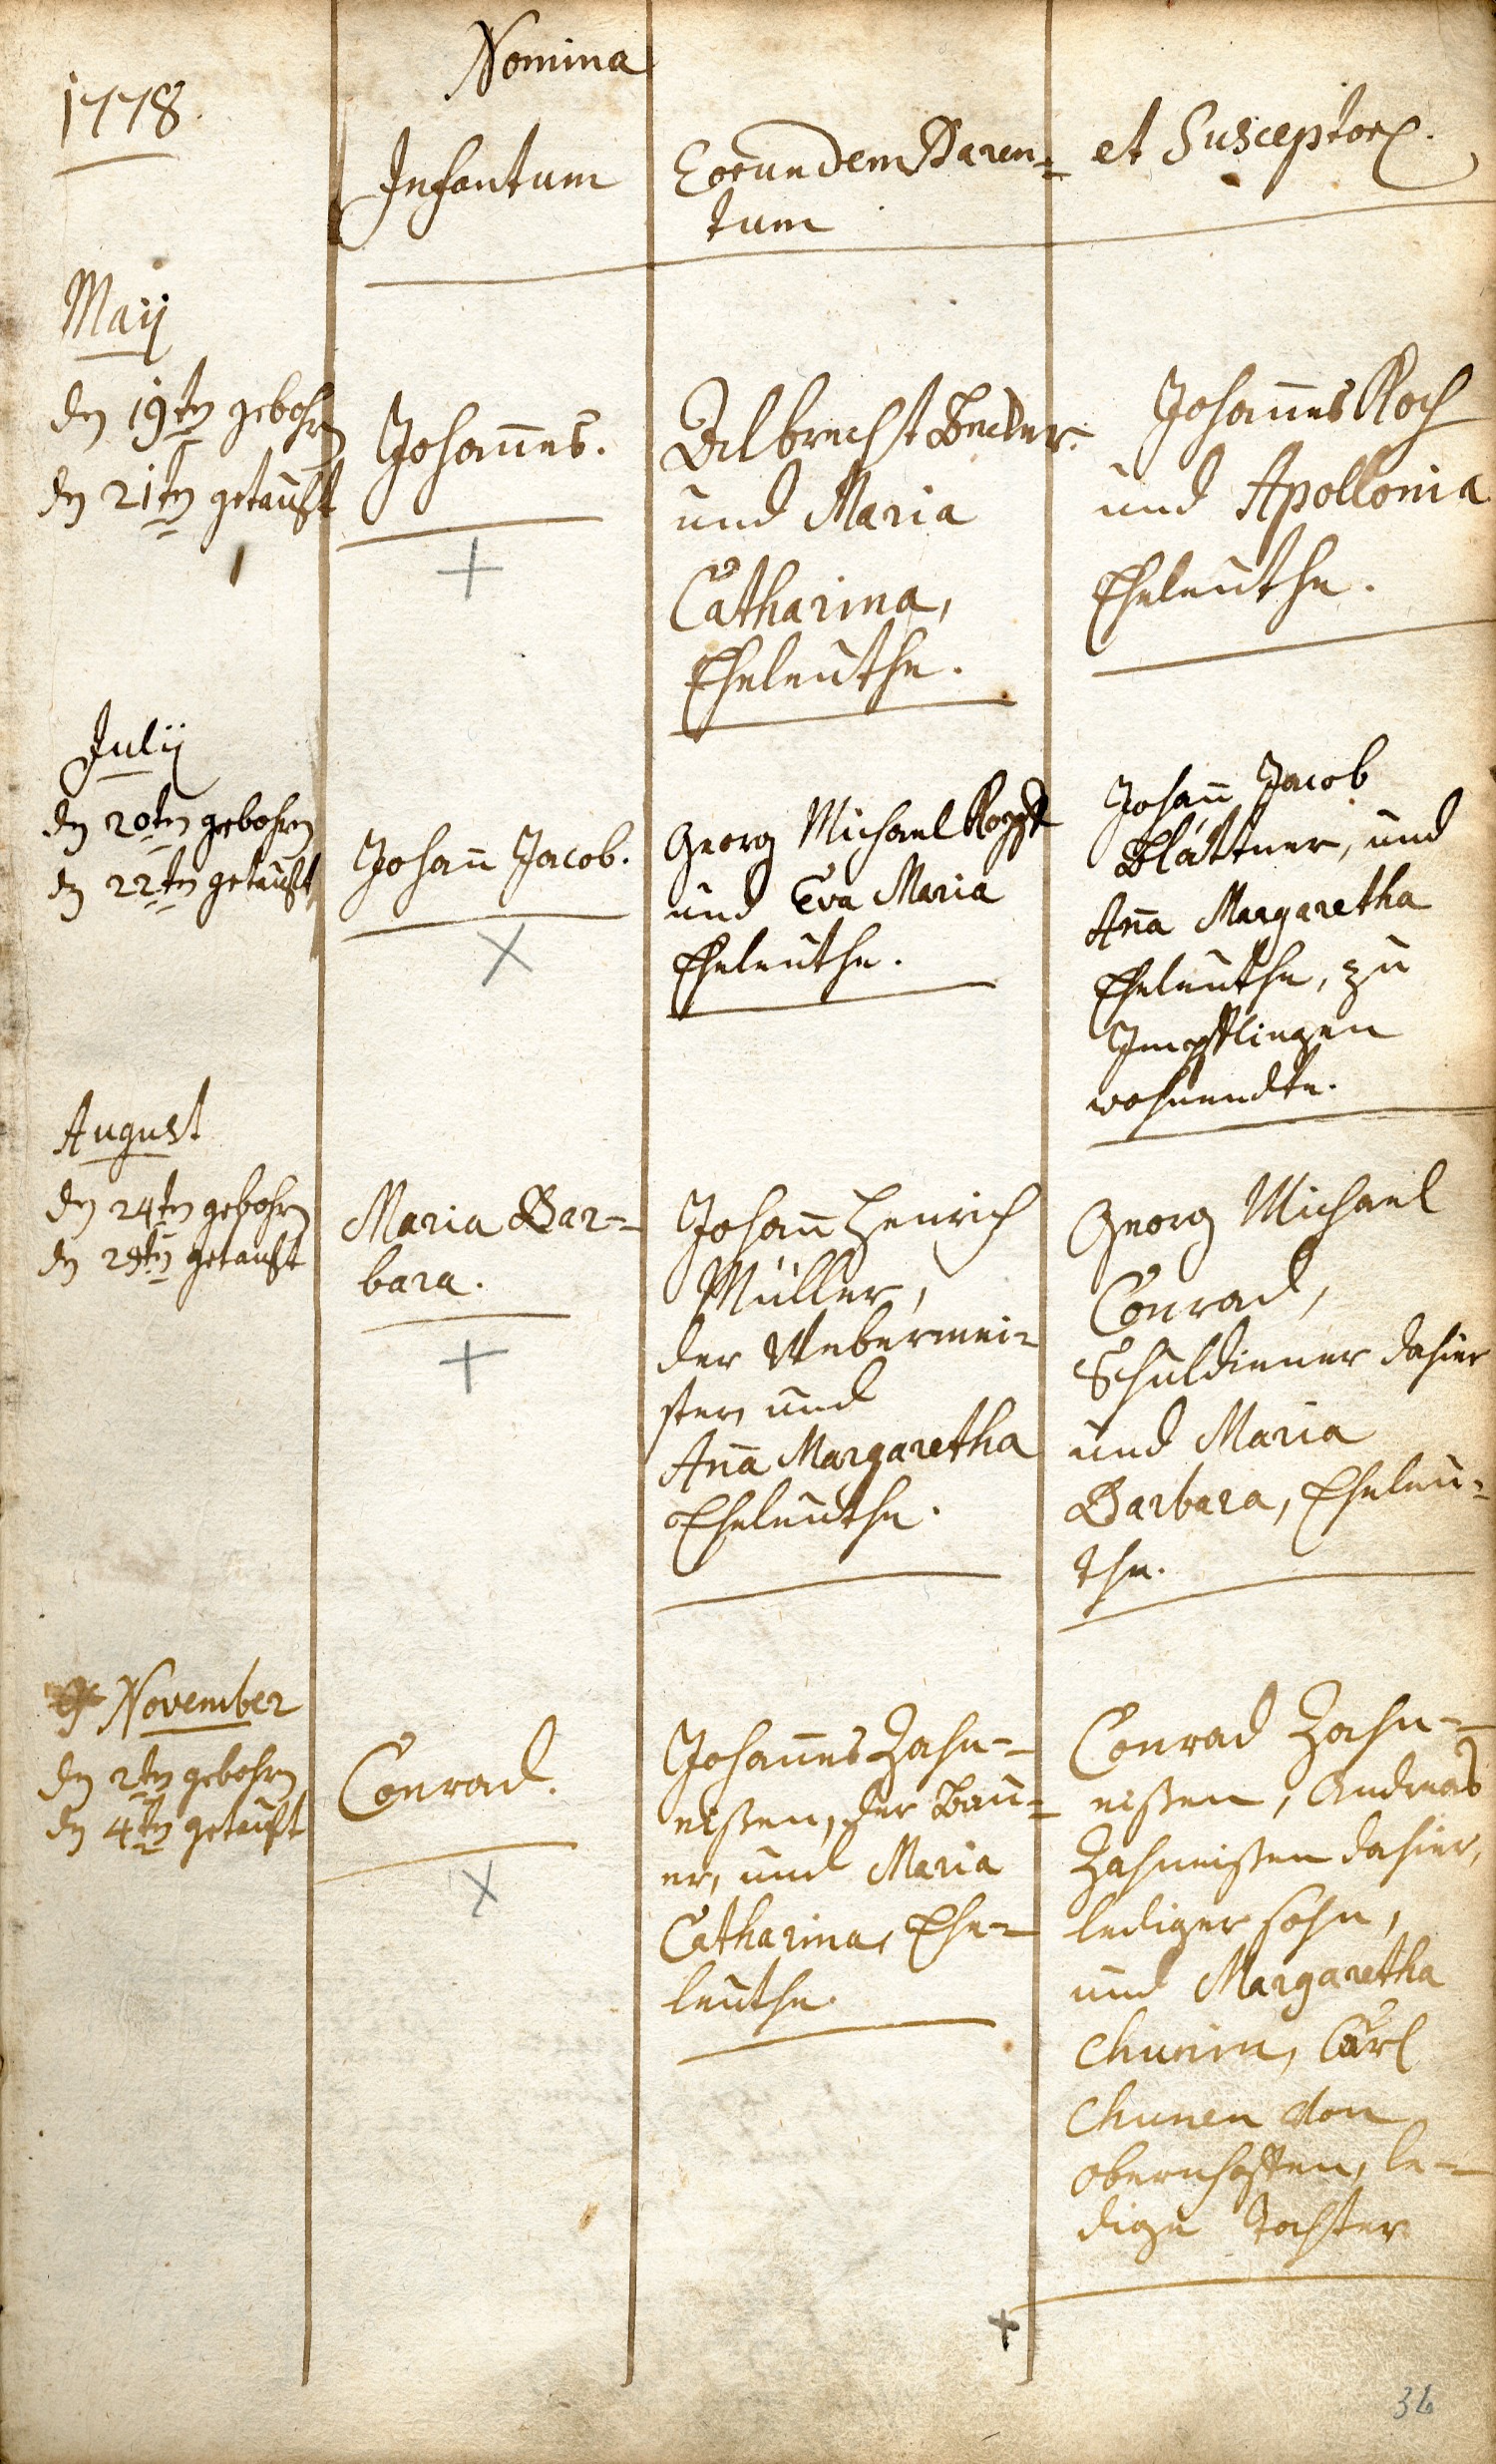 1778.
Nomina
Infantum
Eorundem Paren=
tum
et Susceptor.
Maij
den 19ten gebohrn
den 21ten getaufft
Johannes.
Albrecht Becker
und Maria
Catharina,
Eheleuthe.
Johannes Koch
und Apollonia
Eheleuthe.
Julij
den 20ten gebohren
den 22ten getaufft
Johann Jacob.
Georg Michael
und Eva Maria
Eheleuthe.
Johann Jacob
Blättner, und
Anna Margaretha
Eheleuthe, zu
Impflingen
wohnendte.
August
den 24ten gebohrn
den getaufft
Maria Bar=
bara.
Johann Henrich
Müller,
der Webermei=
ster, und
Anna Margaretha
Eheleuthe.
Georg Michael
Conrad,
Schuldiener dahier
und Maria
Barbara, Eheleu=
the.
November
den 2ten gebohren
den 4ten getaufft
Conrad.
Johannes Zahn=
eißen, der Bau=
er, und Maria
Catharina, Ehe=
leuthe.
Conrad Zahn=
eißen, Andreas
Zahneißen dahier,
lediger sohn,
und Margaretha
Chunin, Carl
Chunen von
oberhoffen, le=
dige Tochter
36